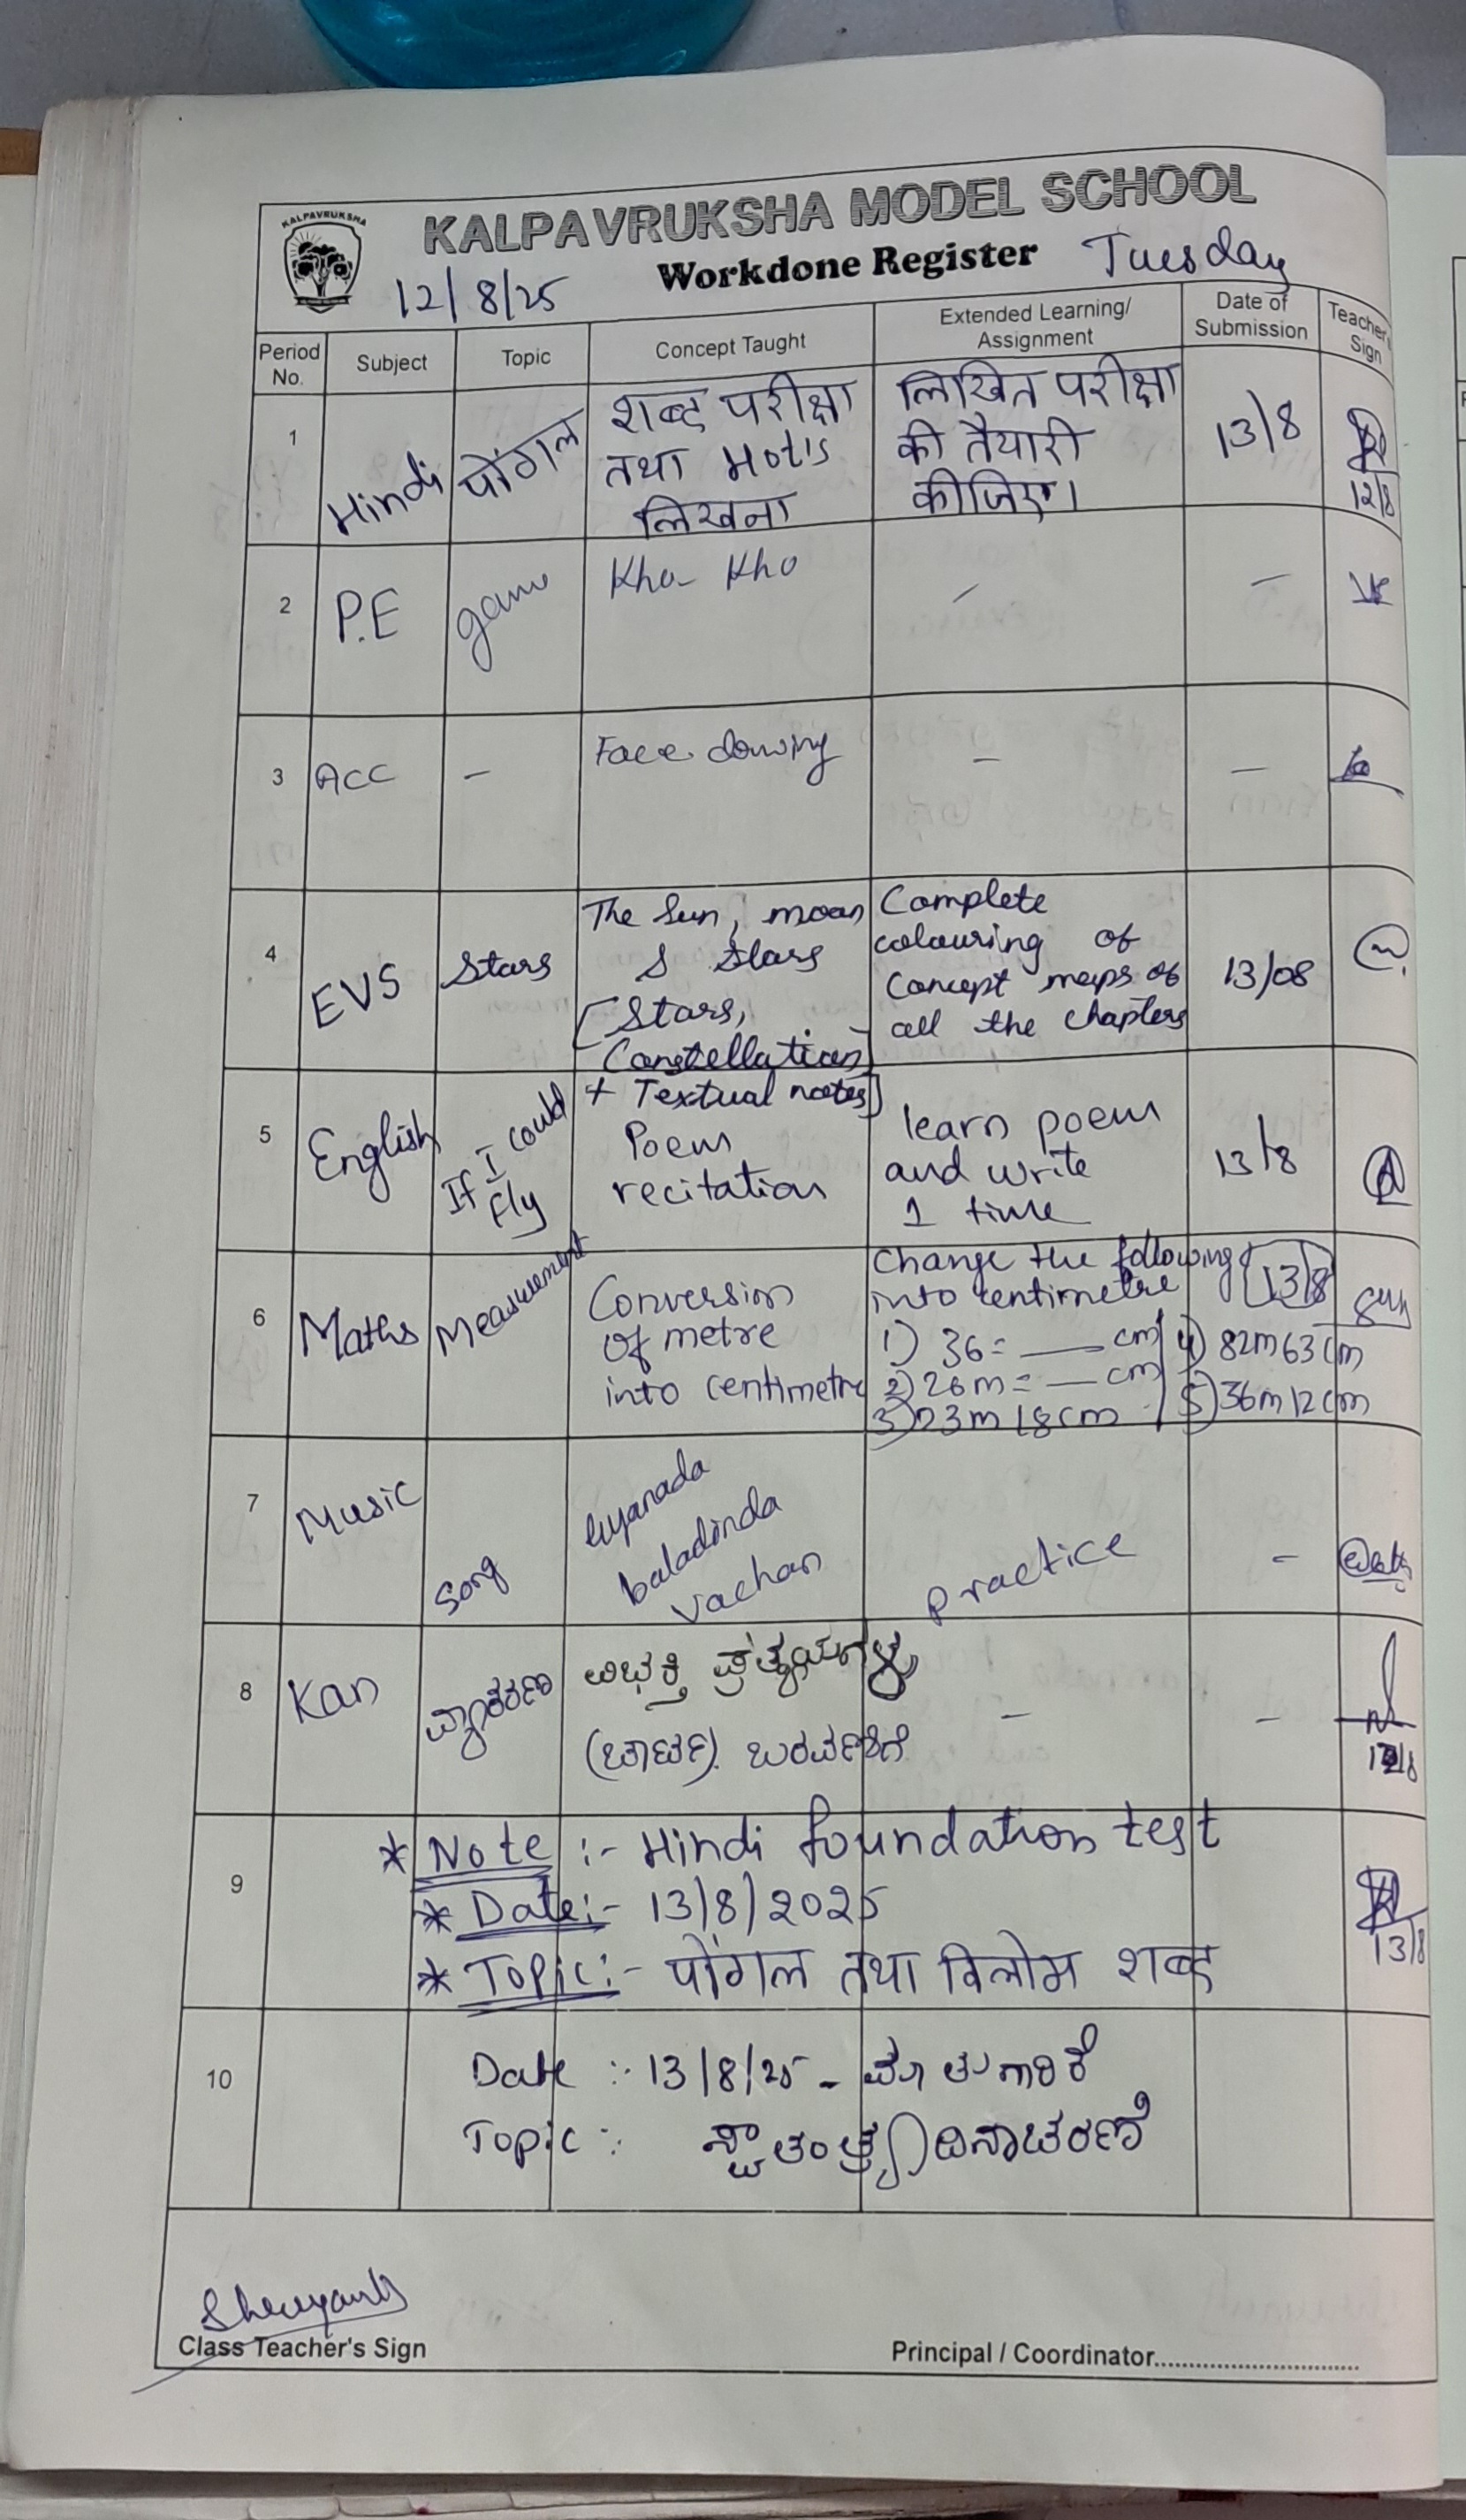 KALPAVRUKSHA
KALPAVRUKSHA MODEL SCHOOL
Workdone Register Tuesday
12/8/25
Period No. Subject Topic Concept Taught Extended Learning/ Assignment Date of Submission Teacher's Sign
1 Hindi पोंगल
शब्द परीक्षा
तथा Hot's
लिखना
लिखित परीक्षा
की तैयारी
कीजिए।
13/8
12/8
2 P.E game Kho-Kho - -
3 ACC - Face - -
4 EVS Stars
The Sun, moon
& Stars
[Stars,
Constellation
+ Textual notes]
Complete
colouring of
concept maps of
all the chapters
13/08
5 English If I could fly
Poem
recitation
learn poem
and write
1 time
13/8
6 Maths Measurement
Conversion
of metre
into centimetre
Change the following
into centimetre
1) 36 = ___ cm
2) 26m = __ cm
3) 23m 18cm
4) 82m 63cm
5) 36m 12cm
13/8
7 Music Song
baladinda
vachan
practice -
8 Kan ವ್ಯಾಕರಣ
ವಿಭಕ್ತಿ ಪ್ರತ್ಯಯಗಳು
ಬರವಣಿಗೆ
- -
9
* Note :- Hindi foundation test
* Date:- 13/8/2025
* Topic:- पोंगल तथा विलोम शब्द
13/8
10
Date :- 13/8/25 - ಮಾತುಗಾರಿಕೆ
Topic :- ಸ್ವಾತಂತ್ರ್ಯ ದಿನಾಚರಣೆ
Class Teacher's Sign
Principal / Coordinator